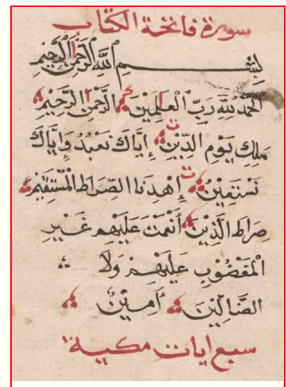 سورة فاتحة الكتاب
بسم الله الرحمن الرحيم
الحمد لله رب العلمين الرحمن الرحيم
ملك يوم الدين إياك نعبد وإياك
نستعين إهدنا الصراط المستقيم
صراط الذين أنعمت عليهم غير
المغضوب عليهم ولا
الضالين امين
سبع ايات مكية